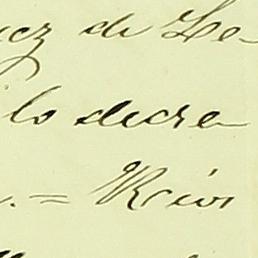 ez de Le-
lo decre-
= Rios